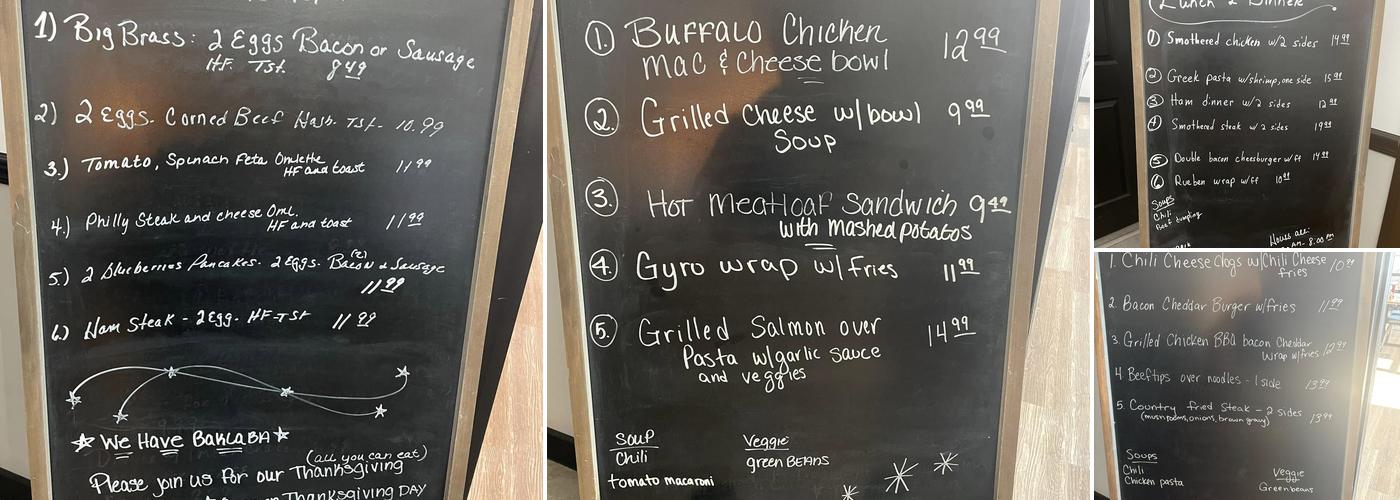 1) Big Brass: 2 Eggs Bacon or Sausage
HF. Tst. 8 49
2) 2 Eggs. Corned Beef Hash. Tst. 10.99
3.) Tomato, Spinach Feta Omlette 11 99
HF and toast
4.) Philly Steak and cheese Oml. 11 99
HF and toast
5.) 2 Blueberries Pancakes. 2 Eggs. Bacon & Sausage
(2)
11 99
6.) Ham Steak - 2 Egg. HF-TST 11 99
We Have BaklaBA
(all you can eat)
Please join us for our Thanksgiving
Thanksgiving DAY
1. Buffalo Chicken 12 99
mac & cheese bowl
2. Grilled Cheese w/bowl 9 99
Soup
3. Hot Meatloaf Sandwich 9 99
with mashed potatos
4. Gyro wrap w/fries 11 99
5. Grilled Salmon over 14 99
Pasta w/garlic sauce
and veggies
Soup
Chili
tomato macaroni
Veggie
green BEANS
Lunch & Dinner
1 Smothered chicken w/2 sides 14 99
2 Greek pasta w/shrimp, one side 15 99
3 Ham dinner w/2 sides 12 99
4 Smothered steak w/2 sides 19 99
5 Double bacon cheesburger w/ff 14 99
6 Rueben wrap w/ff 10 99
Soups
Chili
Beef dumpling
Hours are:
AM - 8:00 PM
1. Chili Cheese Dogs w/Chili Cheese 10 99
fries
2. Bacon Cheddar Burger w/fries 11 99
3. Grilled Chicken BBQ bacon Cheddar
Wrap w/fries 12 99
4 Beef tips over noodles - 1 side 13 99
5. Country fried Steak - 2 sides 13 99
(mushrooms, onions, brown gravy)
Soups
Chili
Chicken pasta
Veggie
Green beans